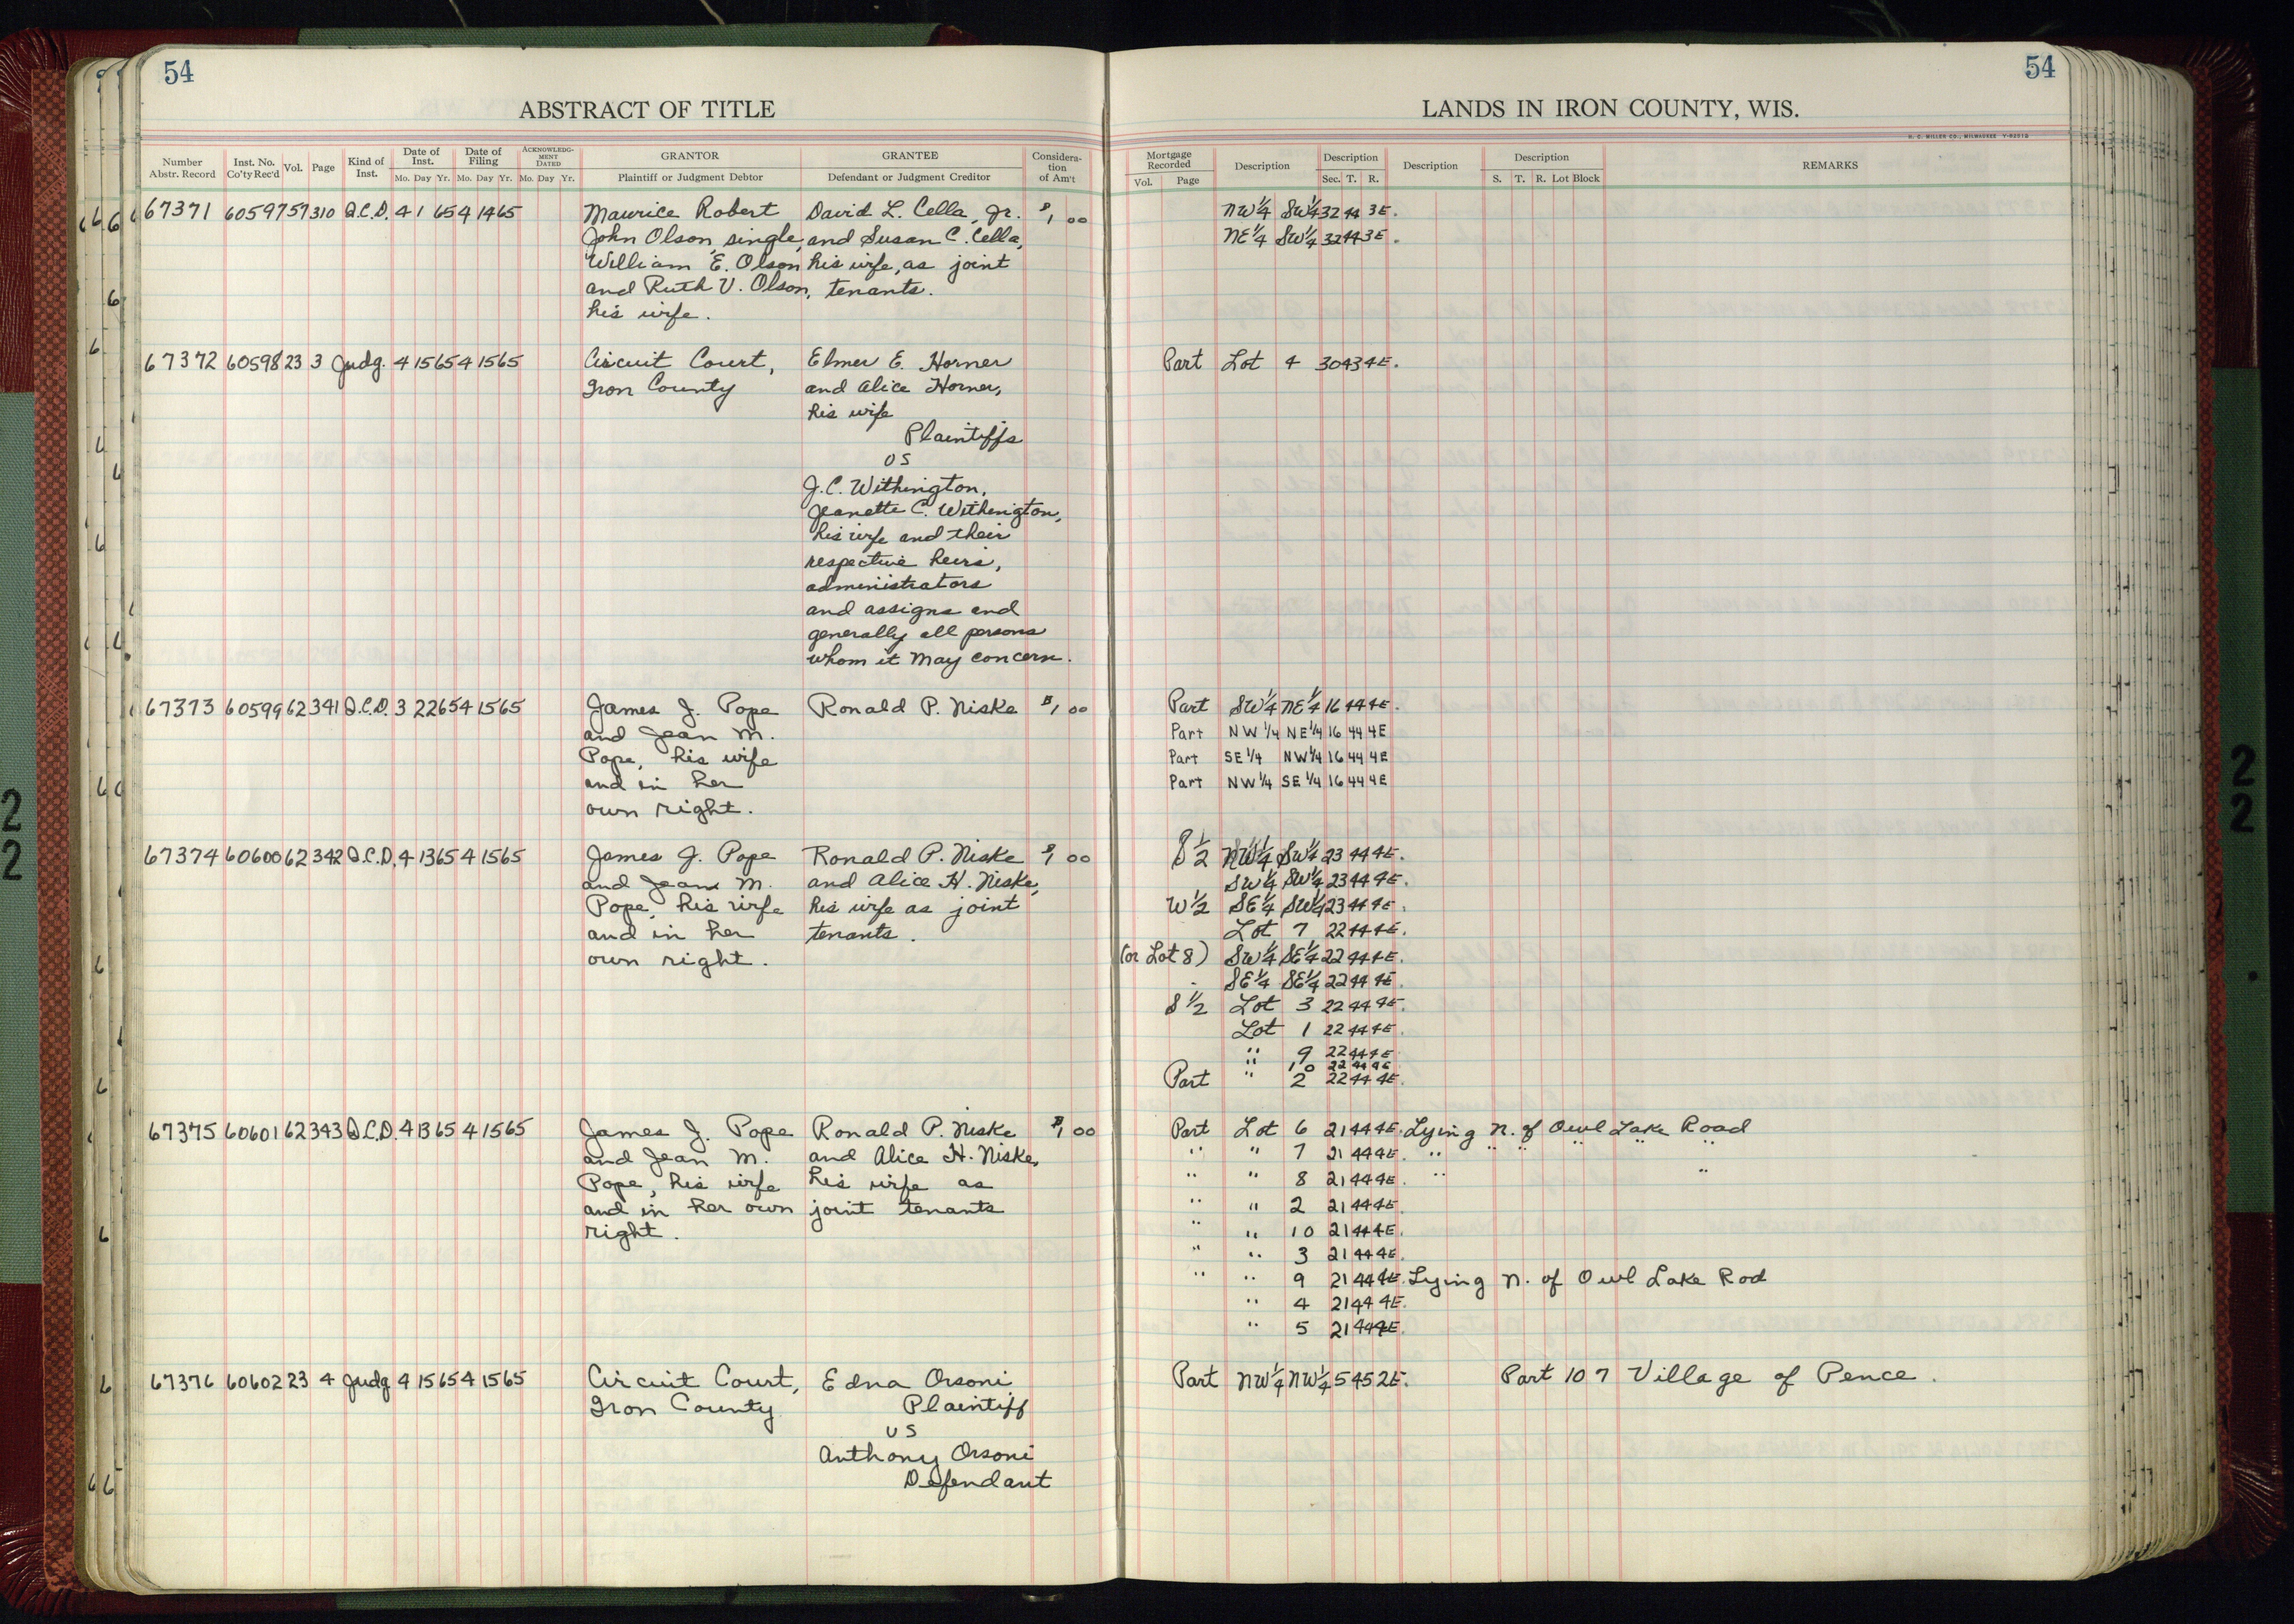 54
54
ABSTRACT OF TITLE
LANDS IN IRON COUNTY, WIS.
H. C. MILLER CO., MILWAUKEE
Number Abstr. Record
Inst. No. Co'ty Rec'd
Vol.
Page
Kind of Inst.
Date of Inst.
Mo. Day Yr.
Date of Filing
Mo. Day Yr.
ACKNOWLEDGMENT DATED
Mo. Day Yr.
GRANTOR
Plaintiff or Judgment Debtor
GRANTEE
Defendant or Judgment Creditor
Considera-
tion
of Am't
Mortgage Recorded
Vol. Page
Description
Description
Sec. T. R.
Description
Description
S. T. R. Lot Block
REMARKS
67371 60597 57 310 Q.C.D. 4 1 65 4 14 65
Maurice Robert
John Olson, single,
William E. Olson
and Ruth V. Olson,
his wife.
David L. Cella, Jr.
and Susan C. Cella,
his wife, as joint
tenants.
$1 00
NW 1/4 SW 1/4 32 44 3E.
NE 1/4 SW 1/4 32 44 3E.
67372 60598 23 3 Judg. 4 15 65 4 15 65
Circuit Court,
Iron County
Elmer E. Horner
and Alice Horner,
his wife
Plaintiffs
vs
J.C. Withington,
Jeanette C. Withington,
his wife and their
respective heirs,
administrators
and assigns and
generally all persons
whom it may concern.
Part Lot 4 30 43 4E.
67373 60599 62 341 Q.C.D. 3 22 65 4 15 65
James J. Pope
and Jean M.
Pope, his wife
and in her
own right.
Ronald P. Niske
$1 00
Part SW 1/4 NE 1/4 16 44 4E.
Part NW 1/4 NE 1/4 16 44 4E
Part SE 1/4 NW 1/4 16 44 4E
Part NW 1/4 SE 1/4 16 44 4E
67374 60600 62 342 Q.C.D. 4 13 65 4 15 65
James J. Pope
and Jean M.
Pope, his wife
and in her
own right.
Ronald P. Niske
and Alice H. Niske,
his wife as joint
tenants.
$1 00
S 1/2 NW 1/4 SW 1/4 23 44 4E.
SW 1/4 SW 1/4 23 44 4E.
W 1/2 SE 1/4 SW 1/4 23 44 4E.
Lot 7 22 44 4E.
(or Lot 8) SW 1/4 SE 1/4 22 44 4E.
SE 1/4 SE 1/4 22 44 4E.
S 1/2 Lot 3 22 44 4E.
Lot 1 22 44 4E.
" 9 22 44 4E.
" 10 22 44 4E.
Part " 2 22 44 4E.
67375 60601 62 343 Q.C.D. 4 13 65 4 15 65
James J. Pope
and Jean M.
Pope, his wife
and in her own
right.
Ronald P. Niske
and Alice H. Niske,
his wife as
joint tenants
$1 00
Part Lot 6 21 44 4E. Lying N. of Owl Lake Road
" " 7 21 44 4E. " " " " " "
" " 8 21 44 4E. " "
" " 2 21 44 4E.
" " 10 21 44 4E.
" " 3 21 44 4E.
" " 9 21 44 4E. Lying N. of Owl Lake Rod
" 4 21 44 4E.
" 5 21 44 4E.
67376 60602 23 4 Judg 4 15 65 4 15 65
Circuit Court,
Iron County
Edna Orsoni
Plaintiff
vs
Anthony Orsoni
Defendant
Part NW 1/4 NW 1/4 5 45 2E. Part 10 7 Village of Pence.
22
22